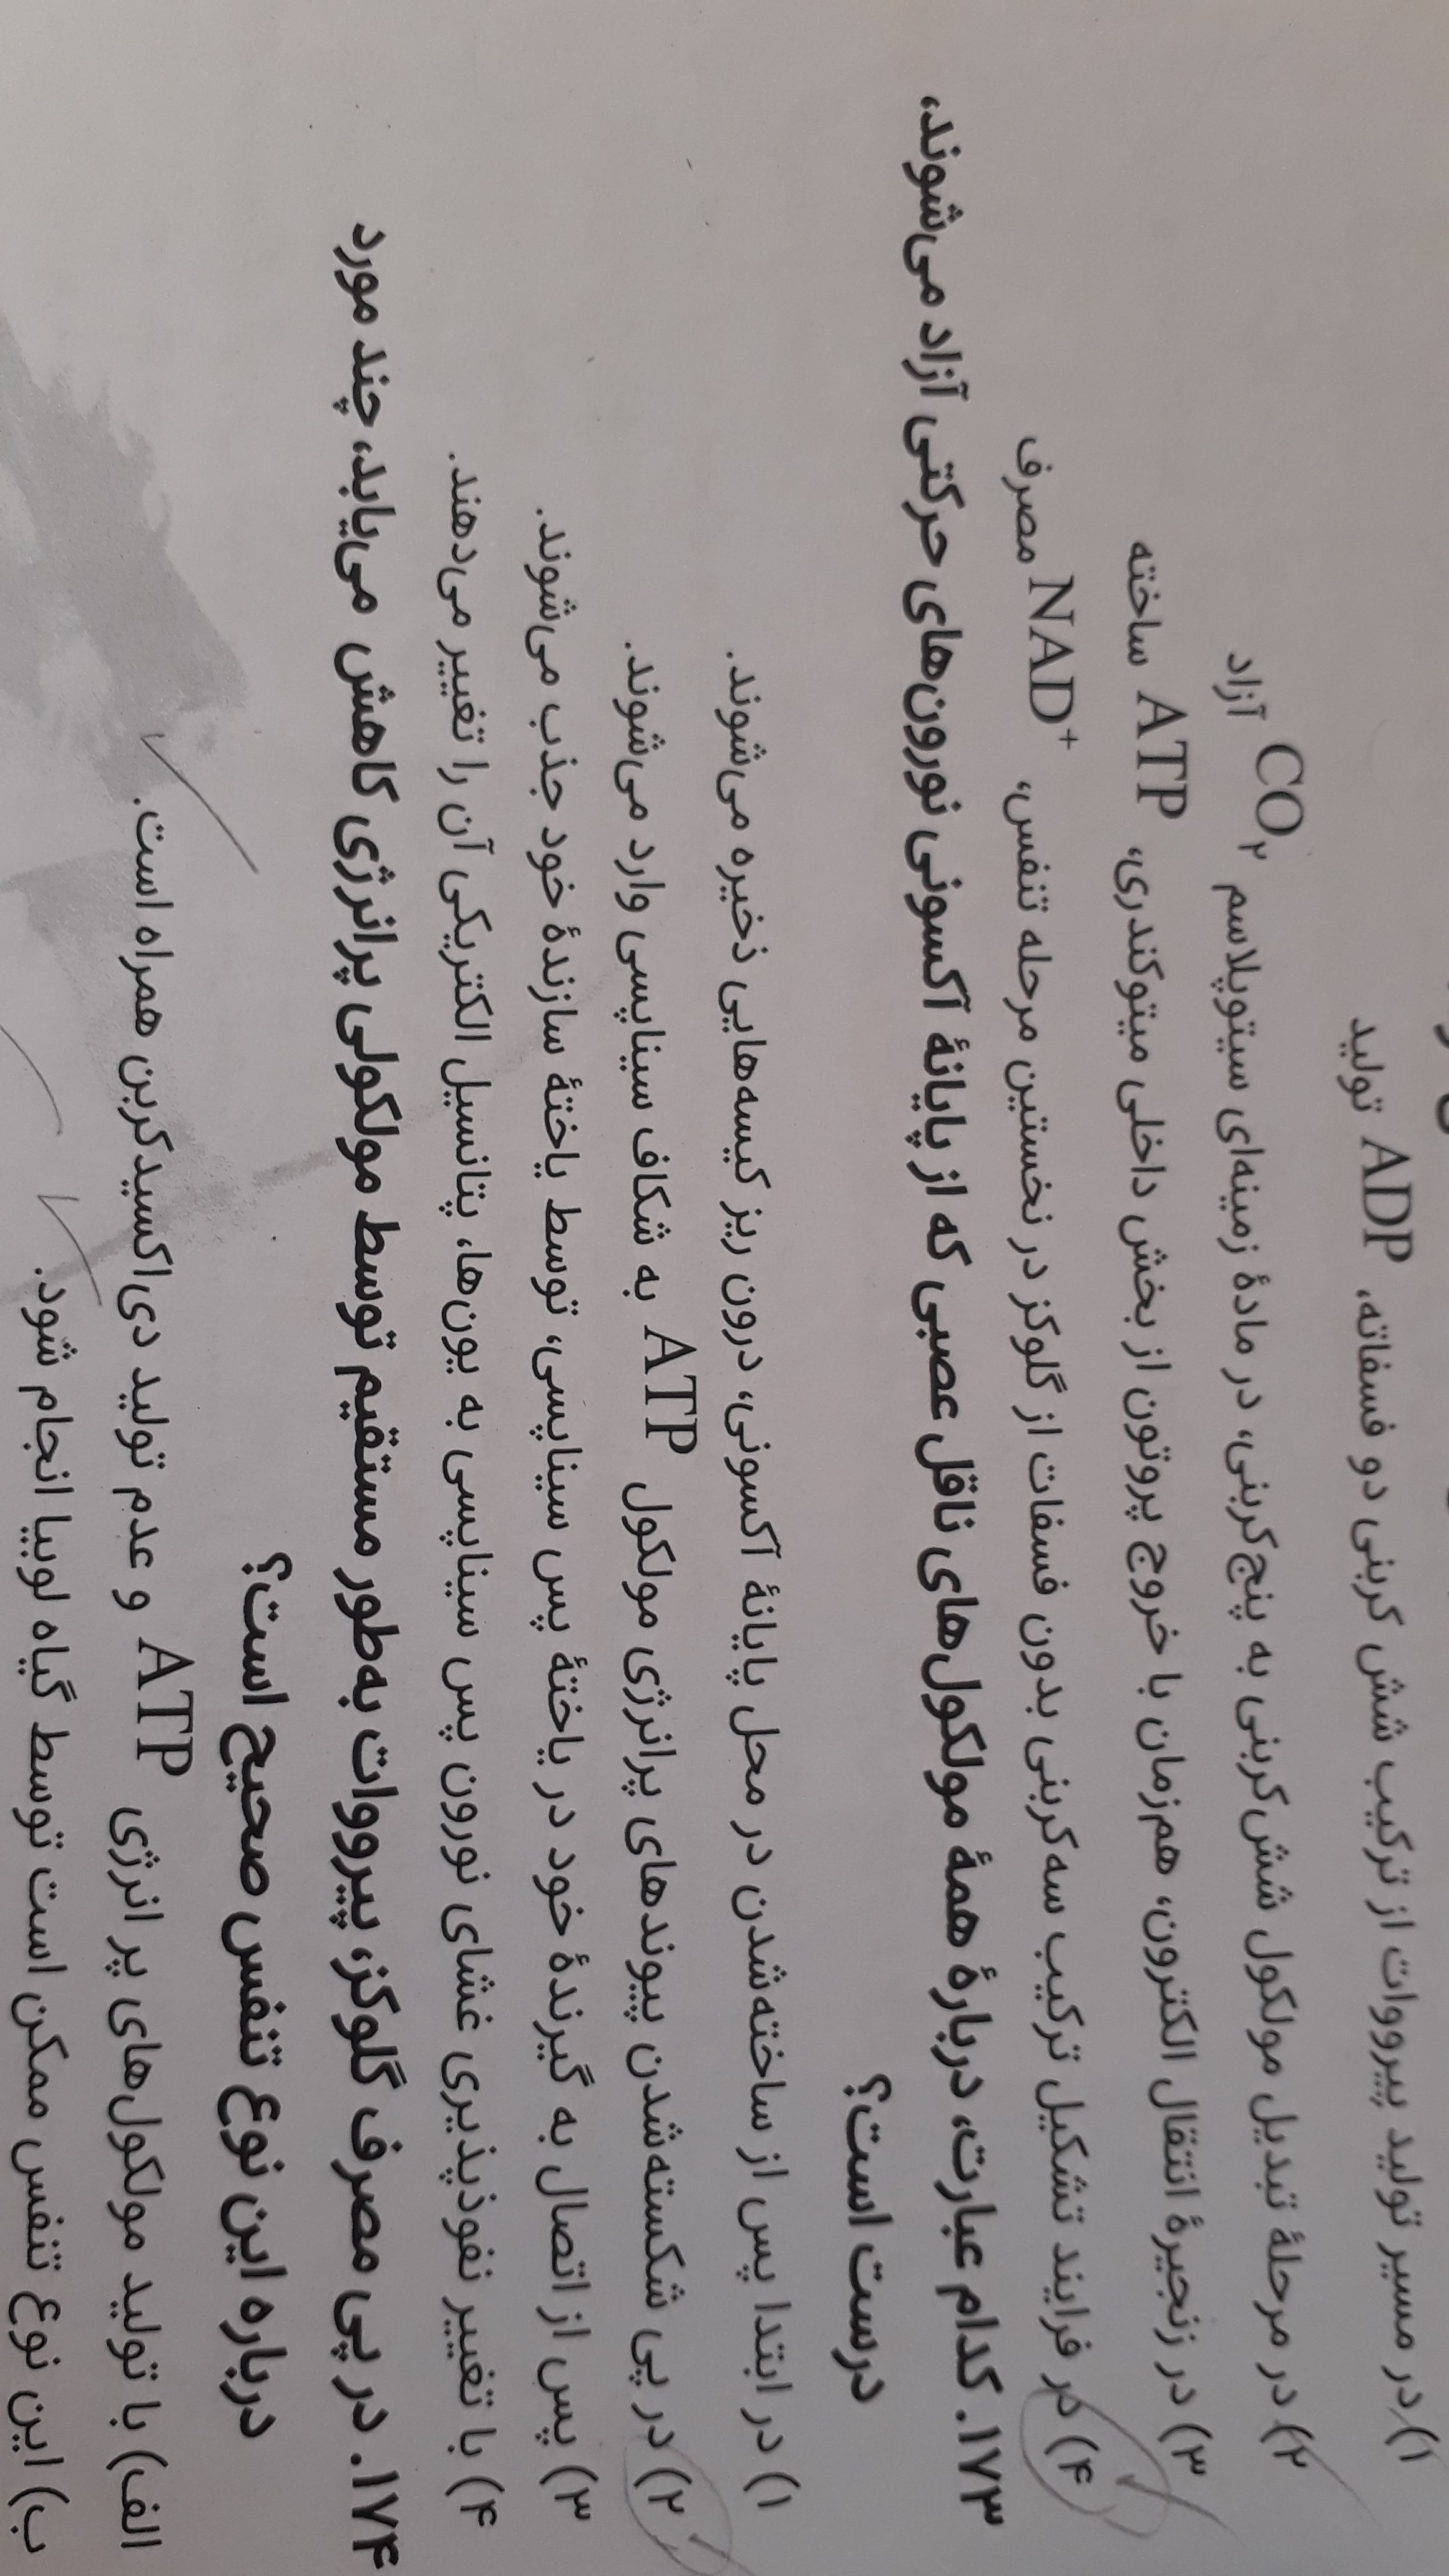 ۱) در مسیر تولید پیرووات از ترکیب شش کربنی دو فسفاته، ADP تولید
۲) در مرحلهٔ تبدیل مولکول شش‌کربنی به پنج‌کربنی، در مادهٔ زمینه‌ای سیتوپلاسم CO۲ آزاد
۳) در زنجیرهٔ انتقال الکترون، هم‌زمان با خروج پروتون از بخش داخلی میتوکندری، ATP ساخته
۴) در فرایند تشکیل ترکیب سه‌کربنی بدون فسفات از گلوکز در نخستین مرحله تنفس، NAD+ مصرف
۱۷۳. کدام عبارت، دربارهٔ همهٔ مولکول‌های ناقل عصبی که از پایانهٔ آکسونی نورون‌های حرکتی آزاد می‌شوند،
درست است؟
۱) در ابتدا پس از ساخته‌شدن در محل پایانهٔ آکسونی، درون ریز کیسه‌هایی ذخیره می‌شوند.
۲) در پی شکسته‌شدن پیوندهای پرانرژی مولکول ATP به شکاف سیناپسی وارد می‌شوند.
۳) پس از اتصال به گیرندهٔ خود در یاختهٔ پس سیناپسی، توسط یاختهٔ سازندهٔ خود جذب می‌شوند.
۴) با تغییر نفوذپذیری غشای نورون پس سیناپسی به یون‌ها، پتانسیل الکتریکی آن را تغییر می‌دهند.
۱۷۴. در پی مصرف گلوکز، پیرووات به‌طور مستقیم توسط مولکولی پرانرژی کاهش می‌یابد، چند مورد
درباره این نوع تنفس صحیح است؟
الف) با تولید مولکول‌های پر انرژی ATP و عدم تولید دی‌اکسیدکربن همراه است.
ب) این نوع تنفس ممکن است توسط گیاه لوبیا انجام شود.